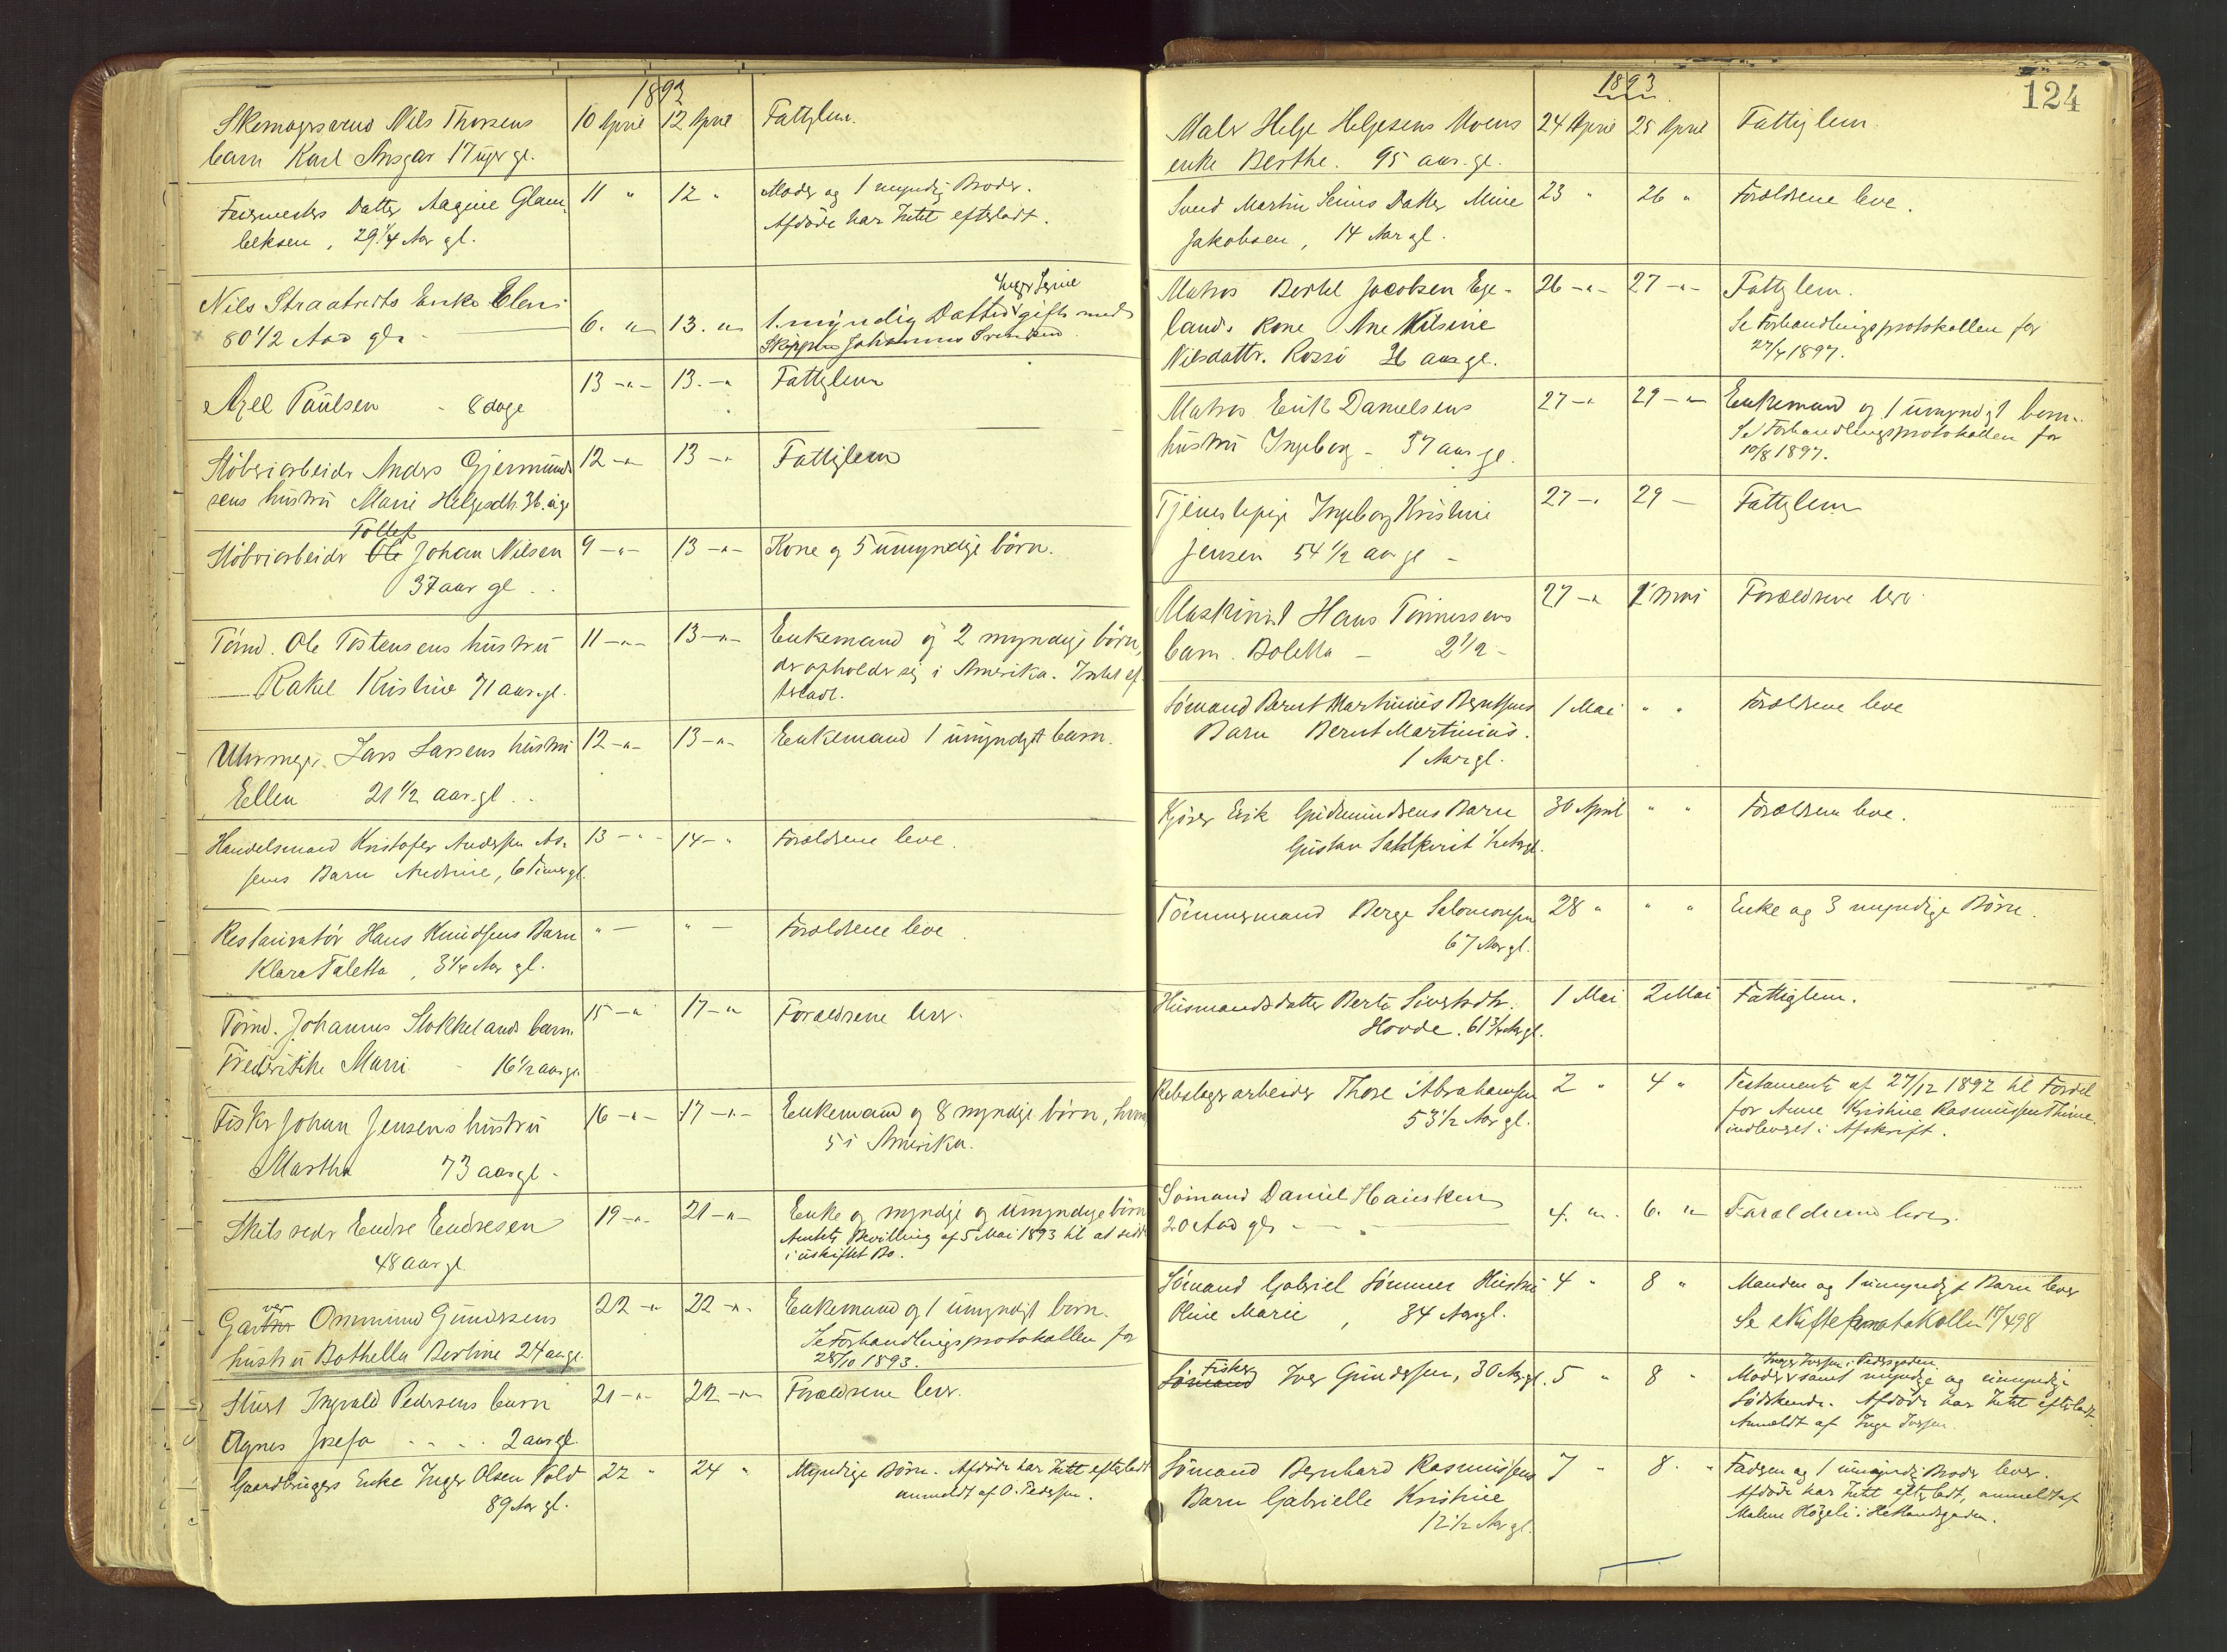 1893
Skomagersvend Nils Thorsens 10 April 12 April Fattiglem.
barn Karl Ansgar 17 uger gl.
Feiermesters Datter Aagine Glam- 11 " 12 " Moder og 1 myndig Broder.
beksen, 29 1/4 Aar gl. Afdöde har Intet efterladt.
Nils Straatveits Enke Elen Inger Serine
80 1/2 Aar gl. 6. " 13. " 1 myndig Datter gift med
Skipper Johannes Svendsen
Axel Paulsen - 8 dage 13 -"- 13. -" Fattiglem
Støberiarbeider Anders Gjermund- 12 -" 13 -" Fattiglem
sens hustru Marie Helgesdtr. 36 a. gl.
Tollef
Støberiarbeidr Ole Johan Nilsen 9 -"- 13 -"- Kone og 5 umyndige börn.
37 aar gl.
Tömd. Ole Tostensens hustru 11 -"- 13 -"- Enkemand og 2 myndige börn,
Rakel Kristine 71 aar gl. der opholder sig i Amerika. Intet ef-
terladt.
Uhrmager Lars Larsens hustru 12 -"- 13 -"- Enkemand 1 umyndigt barn.
Ellen 21 1/2 aar gl.
Handelsmand Kristofer Andersen As- 13 - " 14 - " Forældrene leve.
sens Barn Andrine, 6 Timer gl.
Restauratör Hans Knudsens Barn " - " - Forældrene leve.
Klara Taletta, 3 1/4 Aar gl.
Tömd. Johannes Stokkelands barn 15 -" 17 -" Forældrene lever.
Frederikke Marie - 16 1/2 aar gl.
Fisker Johan Jensens hustru 16 -"- 17 -"- Enkemand og 8 myndige börn, hvoraf
Martha 73 aar gl. 5 i Amerika.
Skibsreder Endre Endresen 19 -"- 21 -"- Enke og myndige og umyndige börn
48 aar gl. Amtets Bevilling af 5 Mai 1893 til at sidde
i uskiftet Bo.
ver
Gartner Ommund Gundersens 22 -" 22 -"- Enkemand og 1 umyndigt barn.
hustru Bothella Bertine 24 aar gl. Se Forhandlingsprotokollen for
28/10 1893.
Stuert Ingvald Pedersens barn 21 -"- 22 -"- Forældrene lever.
Agnes Josefa - - - 2 aar gl.
Gaardbrugers Enke Inger Olsen Vold 22 " 24 " Myndige Börn. Afdöde har Intet efterladt
89 Aar gl. anmeldt af O. Pedersen.
124
1893
Maler Helge Helgesens Moens 24 April 25 April Fattiglem.
enke Berthe. 95 aar gl.
Svend Martin Seines Datter Mine 23 " 26 " Forældrene leve.
Jakobsen, 14 Aar gl.
Matros Bertel Jacobsen Ege- 26 -"- 27 -"- Fattiglem.
lands Kone Ane Nilsine Se Forhandlingsprotokollen for
Nilsdattr. Rossö 36 aar gl. 27/7 1897.
Matros Erik Danielsens 27 -" 29 -"- Enkemand og 1 umyndigt barn.
hustru Ingeborg - 37 aar gl. Se Forhandlingsprotokollen for
10/8 1897.
Tjenestepige Ingeborg Kristine 27 -" 29 - Fattiglem
Jensen 54 1/2 aar gl -
Maskinist Hans Tönnessens 27 -" 1 Mai Forældrene lever.
barn. Boletta - 2 1/2 -
Sömand Bernt Martinius Berntsens 1 Mai " " Forældrene leve
Barn Bernt Martinius.
1 Aar gl.
Kjörer Erik Gudmundsens Barn 30 April " " Forældrene leve.
Gustav 1/2 Aar gl.
Tömmermand Berge Salomonsen 28 " " " Enke og 3 myndige Börn.
67 Aar gl.
Husmandsdatter Berte Sivertsdtr. 1 Mai 2 Mai Fattiglem.
Hovde. 61 3/4 Aar gl.
Rebslagerarbeider Thore Abrahamsen 2 " 4 " Testamente af 27/12 1892 til Fordel
53 1/2 Aar gl. for Anne Kristine Rasmussen Thime
indleveret i Afskrift.
Sömand Daniel Hausken 4. " 6. " Forældrene lever.
20 Aar gl. - - -
Sömand Gabriel Sömmes Hustru 4 " 8 " Manden og 1 umyndigt Barn lever
Oline Marie, 34 Aar gl. Se Skifteprotokollen 17/498
Fisker Inger Iversen i Pedersgaden.
Sømand Iver Gundersen, 30 Aar gl. 5 " 8 " Moder samt myndige og umyndige
Södskende. Afdöde har Intet efterladt.
Anmeldt af Inger Iversen.
Sömand Bernhard Rasmussens 7 " 8 " Faderen og 1 umyndig Broder lever.
Barn Gabrielle Kristine Afdöde har Intet efterladt, anmeldt af
12 1/2 Aar gl. Malene Högeli i Hetlandsgaden.